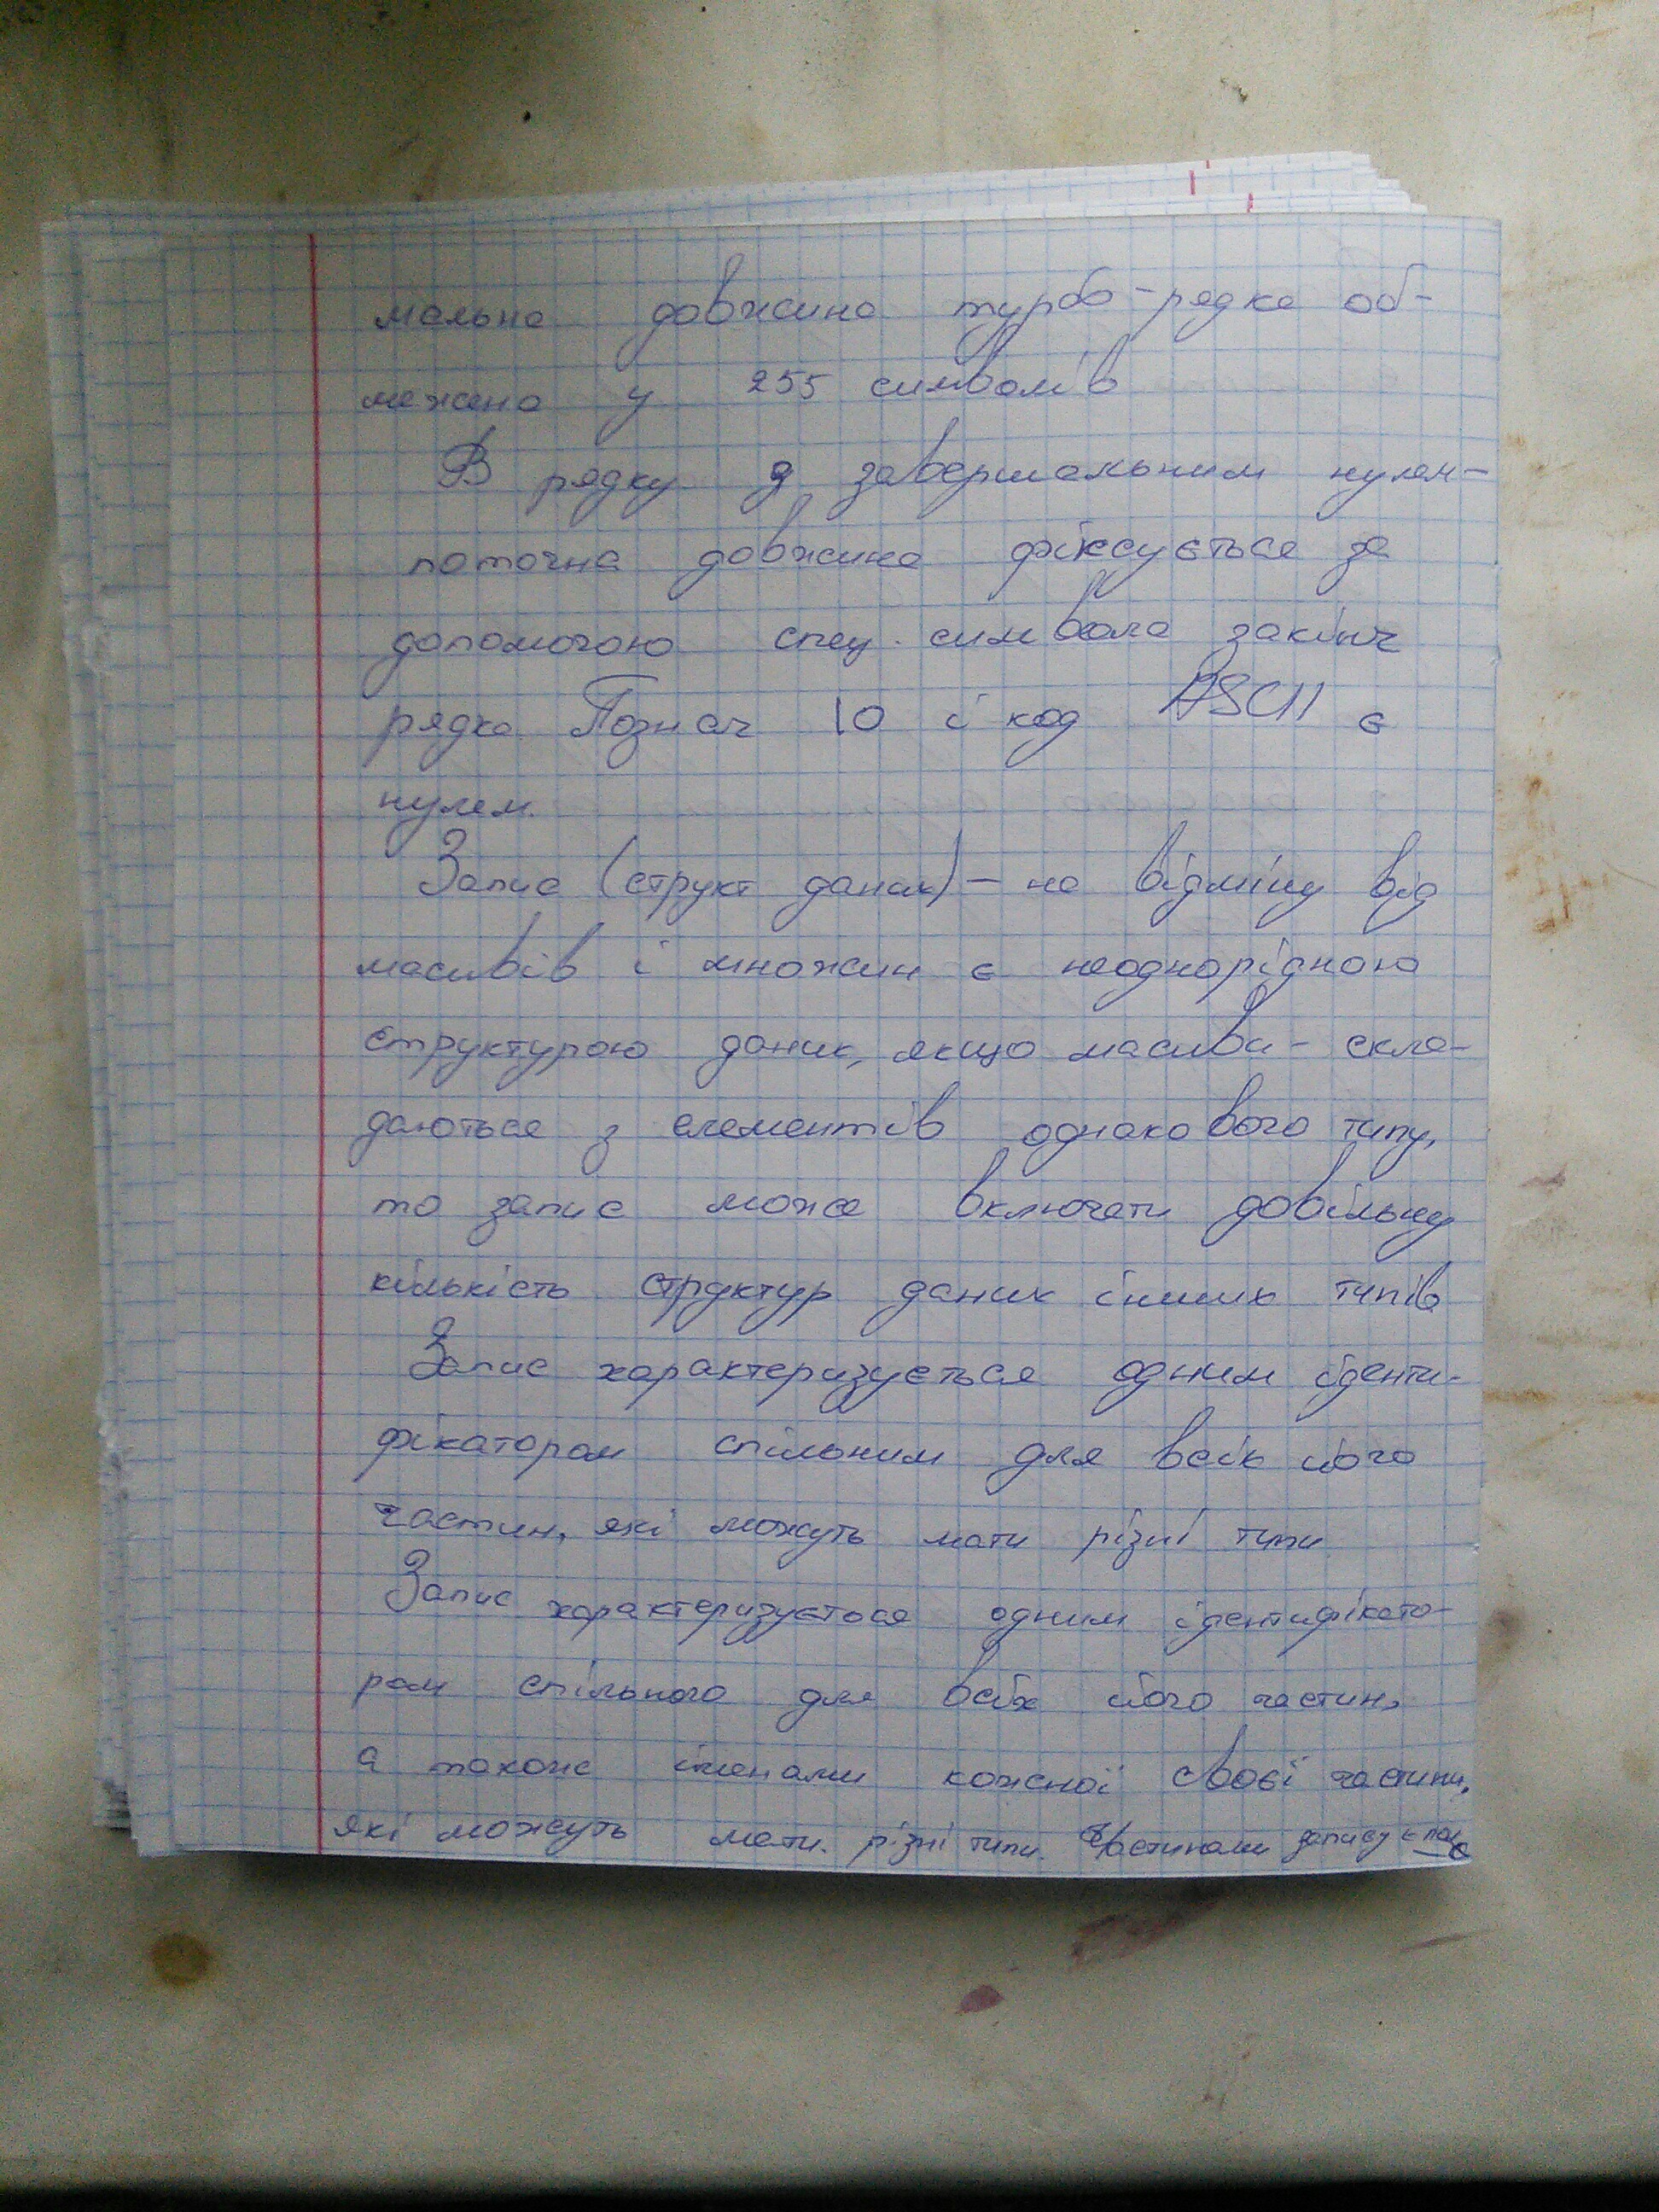 мальна довжина турбо-рядка об-
межена у 255 символів
В рядку з завершальним нулем-
поточна довжина фіксується за
допомогою спец. символа закінч
рядка. Познач \0 і код ASCII є
нулем.
Запис (структ даних) - на відміну від
масивів і множин є неоднорідною
структурою даних, якщо масиви - скла-
даються з елементів однакового типу,
то запис може включати довільну
кількість структур даних інших типів
Запис характеризується одним іденти-
фікатором спільним для всіх його
частин, які можуть мати різні типи
Запис характеризується одним ідентифікато-
ром спільного для всіх його частин,
а також іменами кожної своєї частини,
які можуть мати різні типи. Частинами запису є